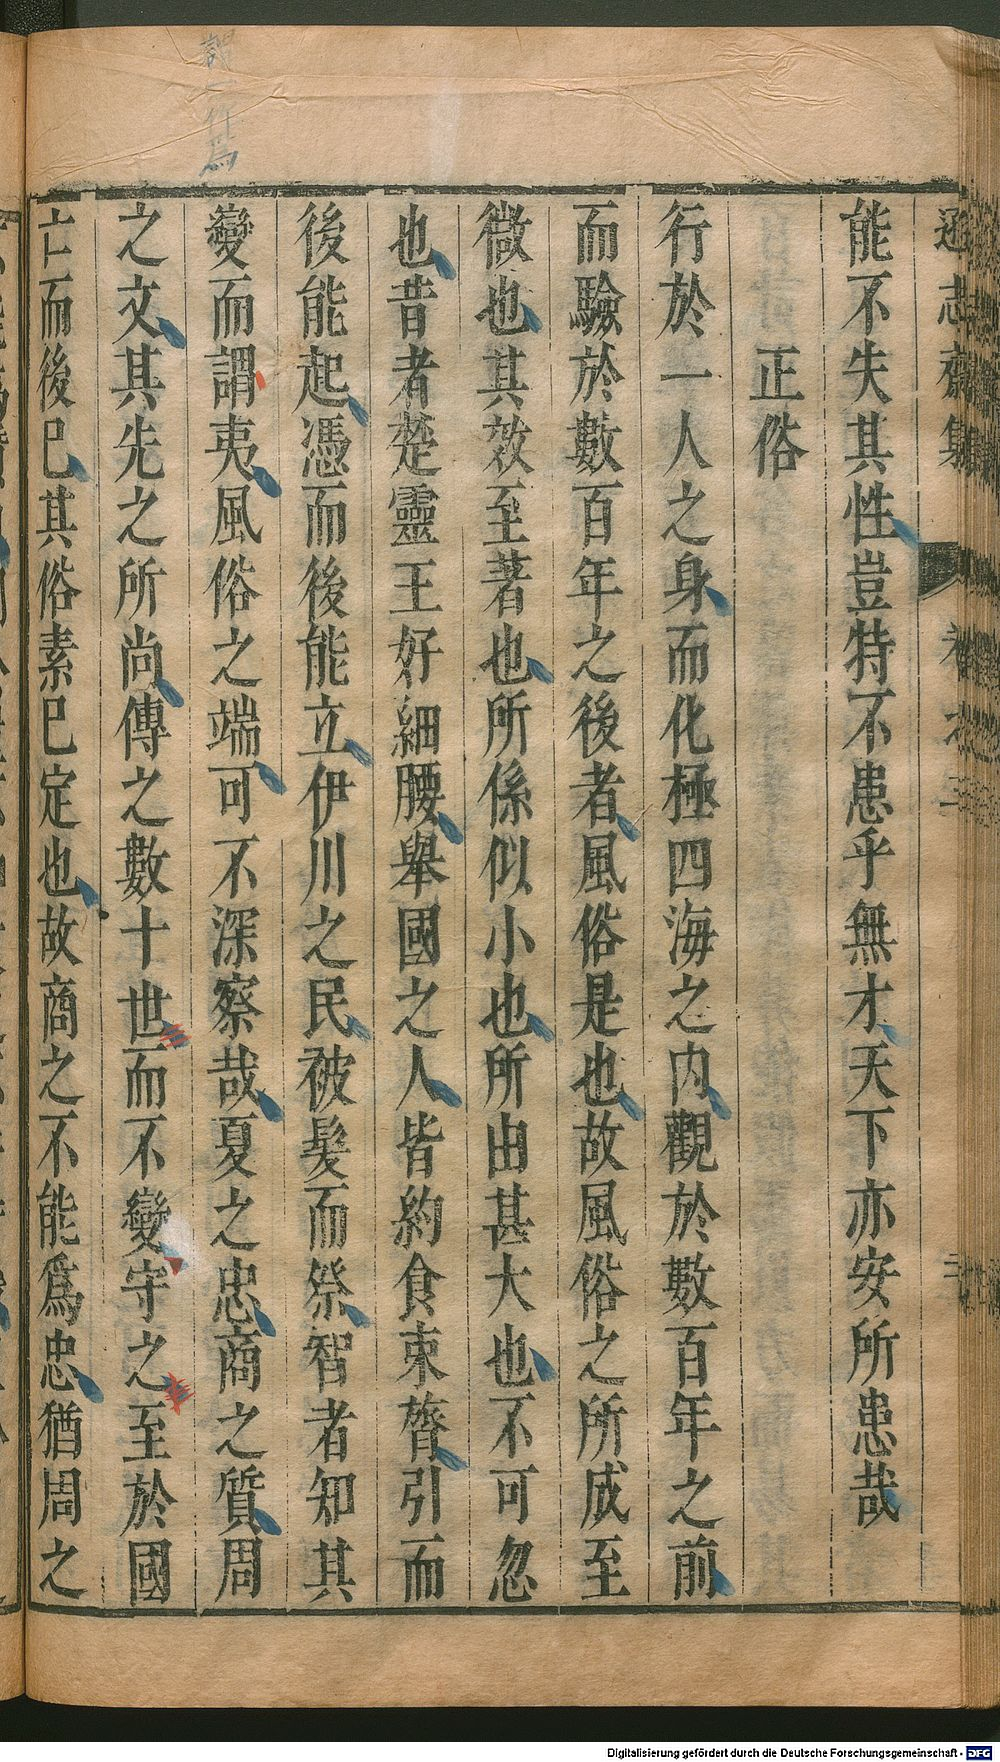 遜志齋集 卷之三
能不失其性豈特不患乎無才天下亦安所患哉
正俗
行於一人之身而化極四海之内觀於數百年之前
而驗於數百年之後者風俗是也故風俗之所成至
微也其效至著也所係似小也所由甚大也不可忽
也昔者楚靈王好細腰舉國之人皆約食束膂引而
後能起憑而後能立伊川之民被髮而祭智者知其
變而謂夷風俗之端可不深察哉夏之忠商之質周
之文其先之所尚傳之數十世而不變守之至於國
亡而後已其俗素已定也故商之不能爲忠猶周之
Digitalisierung gefördert durch die Deutsche Forschungsgemeinschaft - DFG